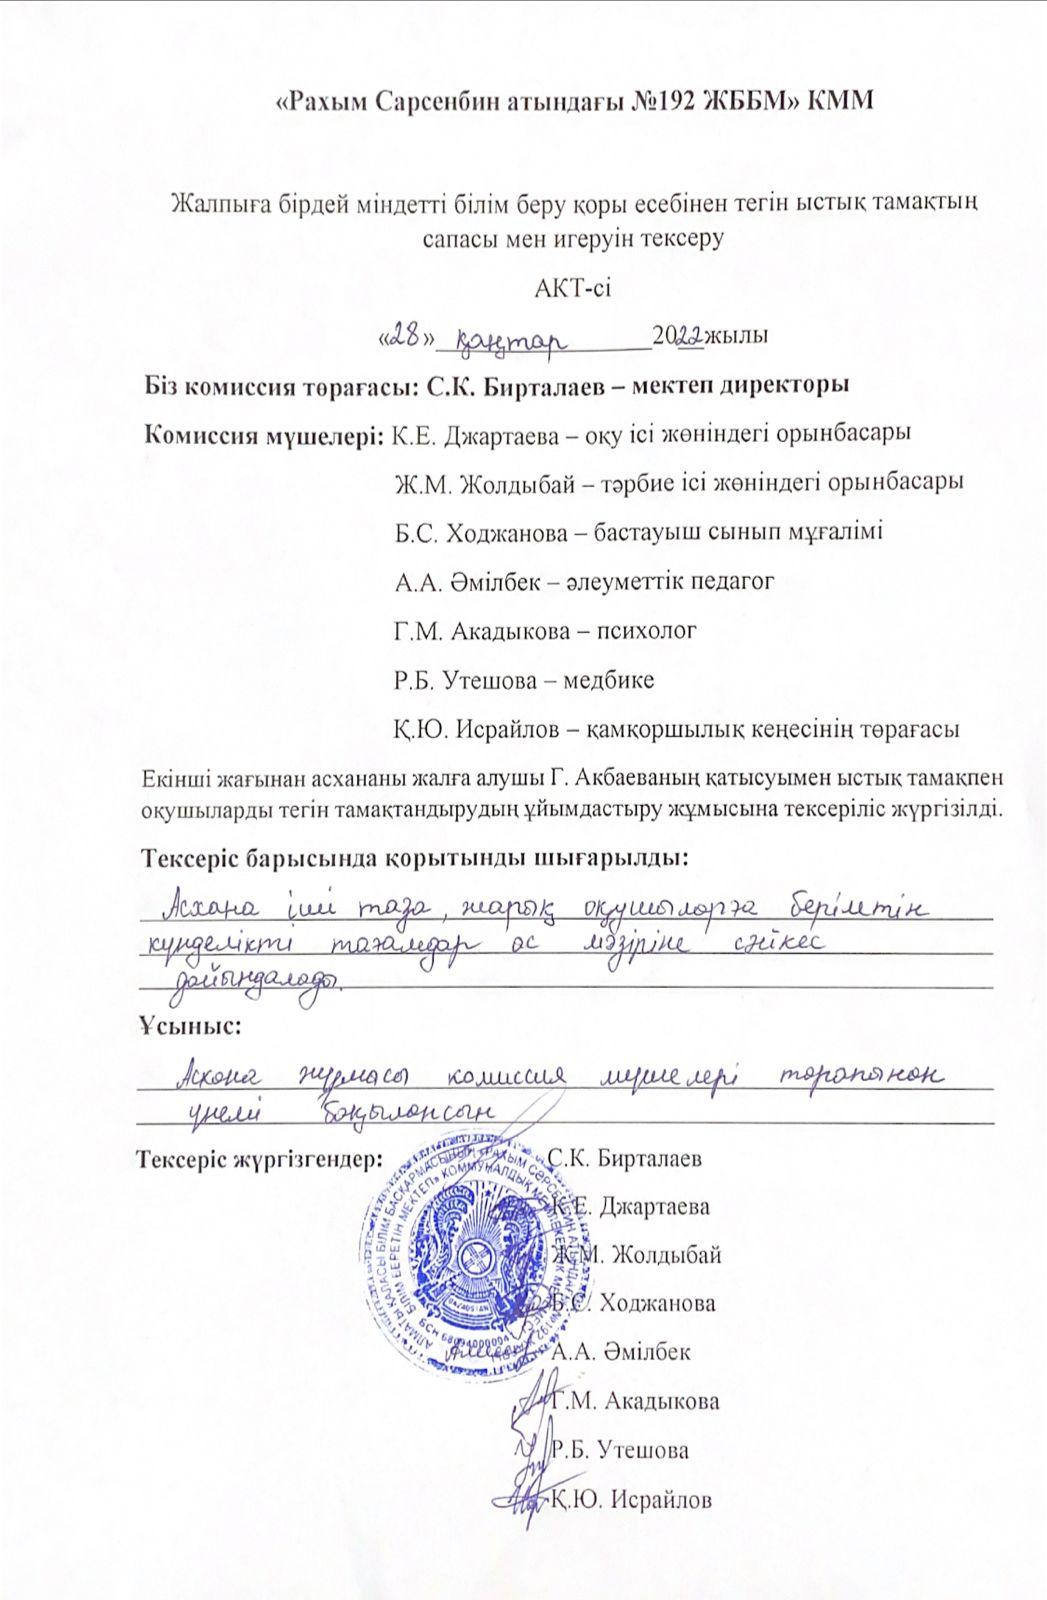 «Рахым Сарсенбин атындағы №192 ЖББМ» КММ
Жалпыға бірдей міндетті білім беру қоры есебінен тегін ыстық тамақтың
сапасы мен игеруін тексеру
АКТ-сі
«28» қаңтар 2022 жылы
Біз комиссия төрағасы: С.К. Бирталаев – мектеп директоры
Комиссия мүшелері: К.Е. Джартаева – оқу ісі жөніндегі орынбасары
Ж.М. Жолдыбай – тәрбие ісі жөніндегі орынбасары
Б.С. Ходжанова – бастауыш сынып мұғалімі
А.А. Әмілбек – әлеуметтік педагог
Г.М. Акадыкова – психолог
Р.Б. Утешова – медбике
Қ.Ю. Исрайлов – қамқоршылық кеңесінің төрағасы
Екінші жағынан асхананы жалға алушы Г. Акбаеваның қатысуымен ыстық тамақпен
оқушыларды тегін тамақтандырудың ұйымдастыру жұмысына тексеріліс жүргізілді.
Тексеріс барысында қорытынды шығарылды:
Асхана іші таза, жарық оқушыларға берілетін
күнделікті тағамдар ас мәзіріне сәйкес
дайындалады.
Ұсыныс:
Асхана жұмысы комиссия мүшелері тарапынан
үнемі бақылансын
Тексеріс жүргізгендер: С.К. Бирталаев
К.Е. Джартаева
Ж.М. Жолдыбай
Б.С. Ходжанова
А.А. Әмілбек
Г.М. Акадыкова
Р.Б. Утешова
Қ.Ю. Исрайлов
АЛМАТЫ ҚАЛАСЫ БІЛІМ БАСҚАРМАСЫНЫҢ «РАХЫМ СӘРСЕНБИН АТЫНДАҒЫ №192
БІЛІМ БЕРЕТІН МЕКТЕП» КОММУНАЛДЫҚ МЕМЛЕКЕТТІК МЕКЕМЕСІ
QAZAQSTAN